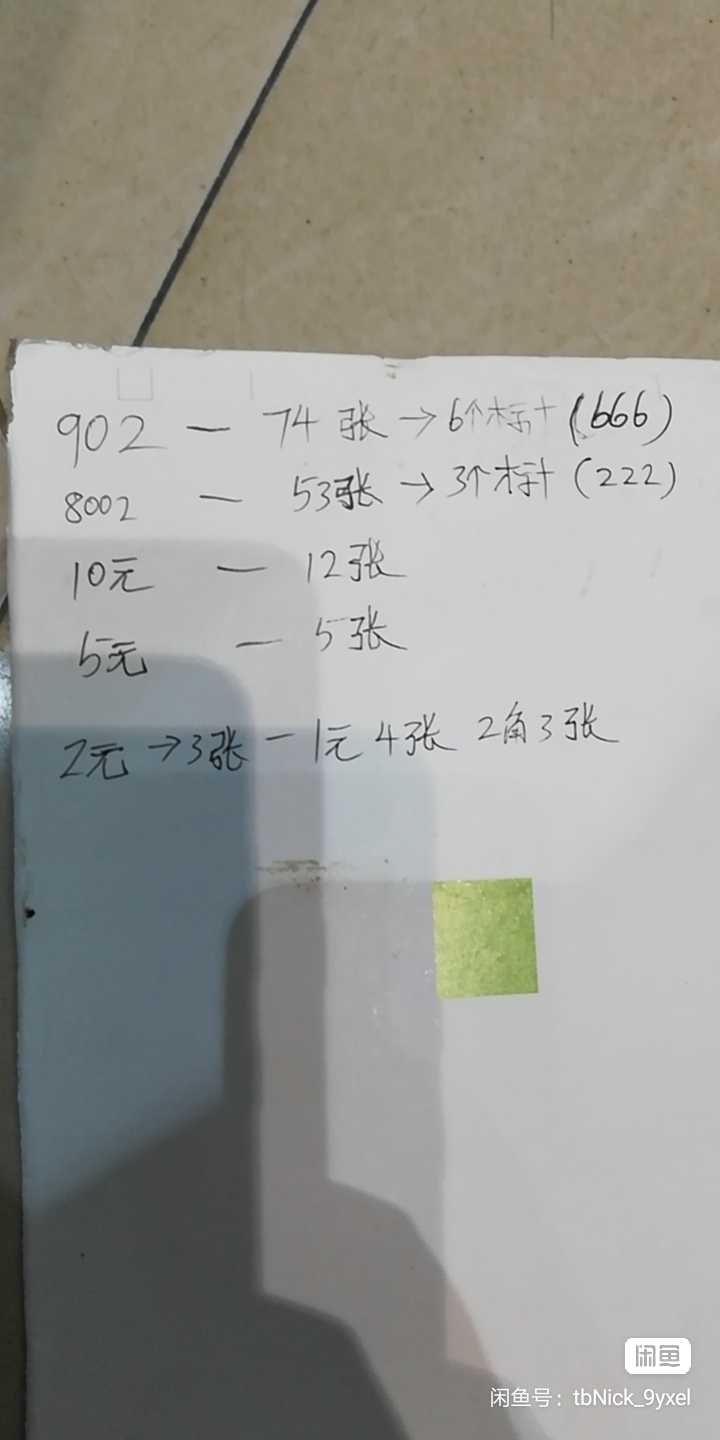 902 — 74张 → 6个标十 (666)
8002 — 53张 → 3个标十 (222)
10元 — 12张
5元 — 5张
2元 → 3张 — 1元 4张 2角 3张
闲鱼
闲鱼号：tbNick_9yxel